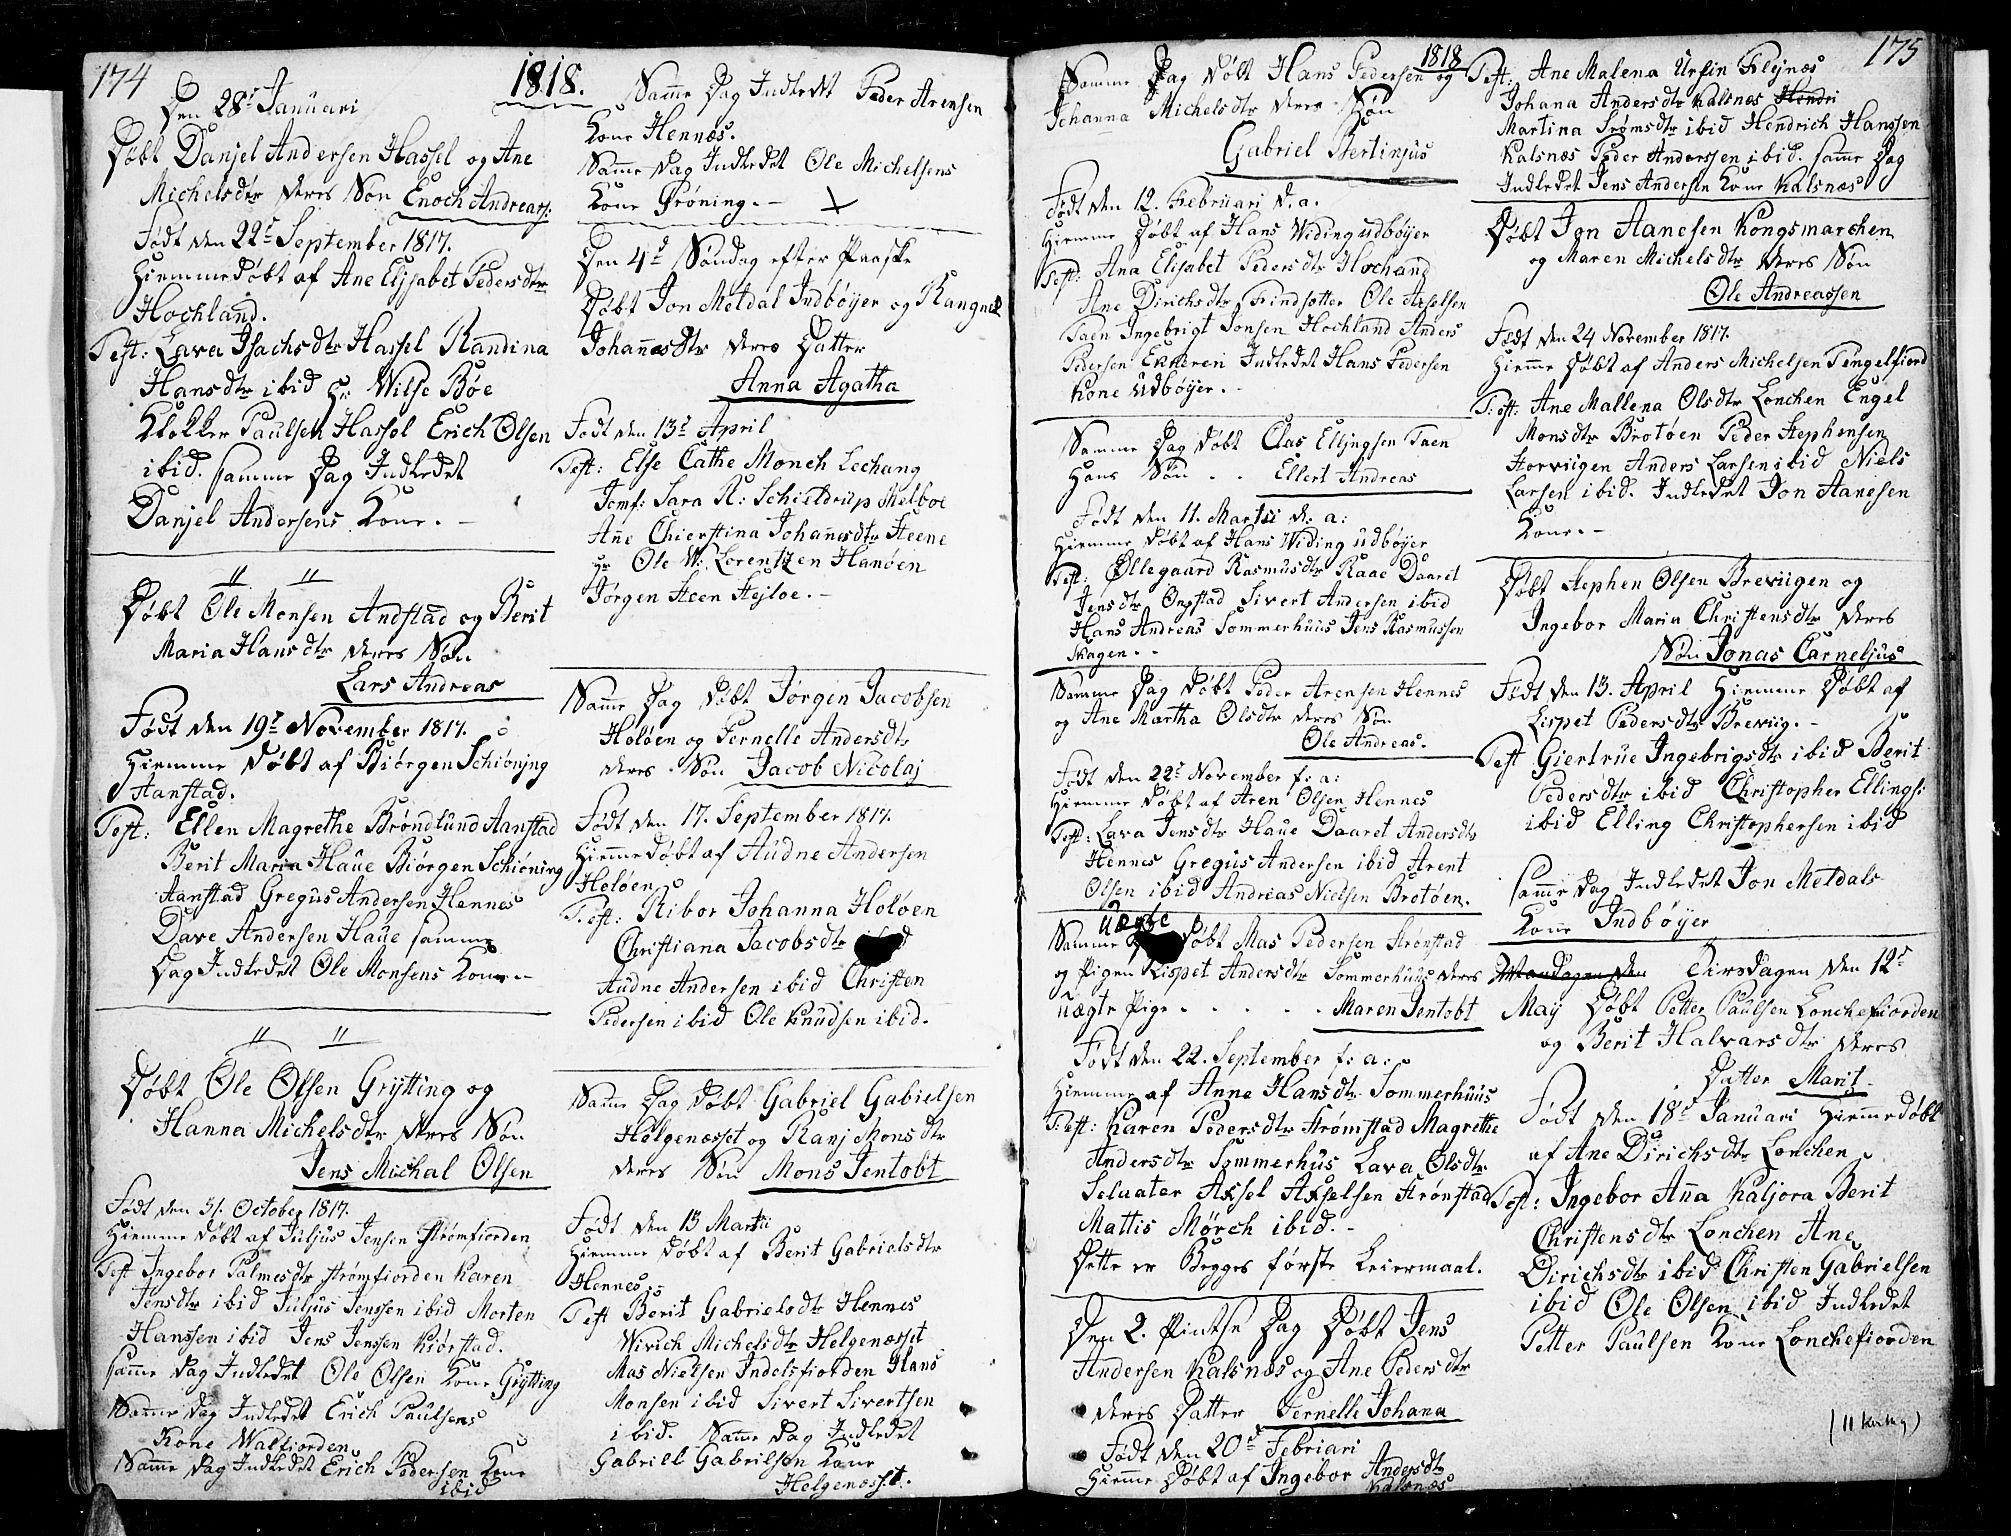 174
1818.
Den 28de Januari
Døbt Danjel Andersen Hassel og Ane
Michelsdtr deres Søn Enoch Andreas:
Født den 22de September 1817.
Hiemmedøbt af Ane Elisabet Pedersdtr
Hochland.
Test: Lava Isachsdtr Hassel Randina
Hansdtr ibid Hr Wilse Bøe
Klokker Paulsen Hassel Erich Olsen
ibid. samme Dag Indledet
Danjel Andersens Kone. -
" "
Døbt Ole Monsen Andstad og Berit
Maria Hansdtr deres Søn
Lars Andreas
Født den 19de November 1817.
Hiemme døbt af Biørgen Schiønjng
Aanstad.
Test: Ellen Magrethe Brøndlund Aanstad
Berit Maria Haue Biørgen Schiøning
Aanstad Gregus Andersen Hennes
Dave Andersen Haue samme
Dag Indledet Ole Monsens Kone. -
" "
Døbt Ole Olsen Grytting og
Hanna Michelsdtr deres Søn
Jens Michal Olsen
Født den 31. October 1817.
Hiemme døbt af Juljus Jensen Strømfiorden
Test Ingebor Palmesdtr Strømfiorden Karen
Jensdtr ibid Juljus Jenssen ibid Morten
Hanssen ibid Jens Jenssen Kiørstad.
samme Dag Indledet Ole Olsen Kone Grytting
Samme dag Indledet Erich Paulsens
Kone Walfiorden
Samme Dag Indledet Erich Pedersen Kone
ibid
Samme Dag Indledet Peder Arensen
Kone Hennes.
Samme Dag Indledet Ole Michelsens
Kone Grøning. -
Den 4de Søndag efter Paaske
Døbt Jon Metdal Indbøyer og Rangnel
Johannesdtr deres Datter
Anna Agatha
Født den 13de April
Test: Else Cathe Monch Lechang
Jomf: Sara R: Schieldrup Melboe
Anne Chierstina Johannesdtr Steene
Hr Ole W: Lorentzen Hanøen
Jørgen Steen Stejloe. -
Samme Dag Døbt Jørgen Jacobsen
Holøen og Pernelle Andersdtr
deres Søn Jacob Nicolaj
Født den 17. September 1817.
Hiemmedøbt af Audne Andersen
Holøen
Test: Ribor Johanna Holøen
Christiana Jacobsdtr
Audne Andersen ibid Christen
Pedersen ibid Ole Knudsen ibid.
Samme Dag Døbt Gabriel Gabielsen
Helgenæsset og Ranj Monsdtr
deres Søn Mons Jentobt
Født den 13 Martii
Hiemme Døbt af Berit Gabrielsdtr
Hennes
Test Berit Gabrielsdtr Hennes
Wivich Michelsdtr Helgenæsset
Mas Nielsen Indelsfiorden Hans
Monsen ibid Sivert Sivertsen
ibid. Samme Dag Indledet
Gabriell Gabrilsen Kone
Helgenæsset.
1818
175
Samme Dag Døbt Hans Pedersen og
Johanna Michelsdtr deres Søn
Gabriel Bertinjus
Født den 12. Februari d. a.
Hiemme Døbt af Hans Widing udbøyer
Test: Ana Elisabet Pedersdtr Hochand
Ane Dirichsdtr Frindsøtter Ole Axselsen
Taen Ingebrigt Jonsen Hochland Anders
Pedersen Ekkeren Indledet Hans Pedersen
Kone Udbøyer. -
Samme Dag døbt Clas Ellingsen Taen
Hans Søn . . Ellert Andreas
Født den 11. Martii d: a:
Hiemme Døbt af Hans Widing udbøyer
Test: Øllegaard Rasmusdtr Raae Daaret
Jensdtr Onstad Sivert Andersen ibid
Hans Andreas Sommerhuus Jens Rasmussen
Skagen. -
Samme Dag døbt Peder Arensen Hennes
og Ane Martha Olsdtr deres Søn
Ole Andreas.
Født den 22de November f: a:
Hiemme Døbt af Aren Olsen Hennes
Test: Lava Jensdtr Haue Daaret Andersdtr
Hennes Gregus Andersen ibid Arent
Olsen ibid Andreas Nielsen Brotøen.
Uægte
Samme Døbt Mas Pedersen Strønstad
og Pigen Lispet Andersdtr Sommerhuus deres
Uægte Pige . . . . . Maren Jentobt
Født den 22. September f: a:
Hiemme af Anne Hansdtr Sommerhuus
Test: Karen Pedersdtr Strømstad Magrethe
Andersdtr Sommerhus Lava Olsdtr
Seluater Axsel Axselsen Strønstad
Mattis Mørch ibid. -
Dette er Begges første Leiermaal.
Den 2. Pintse Dag Døbt Jens
Andersen Kalsnæs og Ane Pedersdtr
deres Datter Pernelle Johana
Født den 20de Febriari
Hiemme Døbt af Ingebor Andersdtr
Kalsnæs
Test: Ane Malena Ursin Flejnæs
Johana Andersdtr Kalsnæs Hendri
Martina Srømsdtr ibid Hendrich Hanssen
Kalsnæs Peder Anderssen ibid. samme Dag
Indledet Jens Andersen Kone Kalsnæs
Døbt Jon Aanesen Kongsmarchen
og Maren Michelsdtr deres Søn
Ole Andreassen
Født den 24 November 1817.
Hiemme Døbt af Anders Michelsen Tengelfiord
Test: Ane Mallena Olsdtr Lonchen Engel
Monsdtr Brotøen Peder Stephensen
Storviigen Anders Larsen ibid Niels
Larsen ibid. Indledet Jon Aanesen
Kone. -
Døbt Stephen Olsen Breviigen og
Ingebor Maria Christensdtr deres
Søn Jonas Carneljus
Født den 13. April Hiemme Døbt af
Lispet Pedersdtr Breviig. -
Test Giertrue Ingebrigsdtr ibid Berit
Pedersdtr ibid Christopher Ellings:
ibid Elling Christophersen ibid
samme Dag Indledet Jon Metdals
Kone Indbøyer
Mandagen den Tirsdagen den 12de
Maij Døbt Petter Paulsen Lonchefiorden
og Berit Halvarsdtr deres
Datter Marit
Født den 18de Januari Hiemmedøbt
af Ane Dirichsdtr Lonchen
Test: Ingebor Anna Kaljora Berit
Christensdtr Lonchen Ane
Dirichsdtr ibid Christen Gabrielsen
ibid Ole Olsen ibid Indledet
Petter Paulsen Kone Lonchefiorden